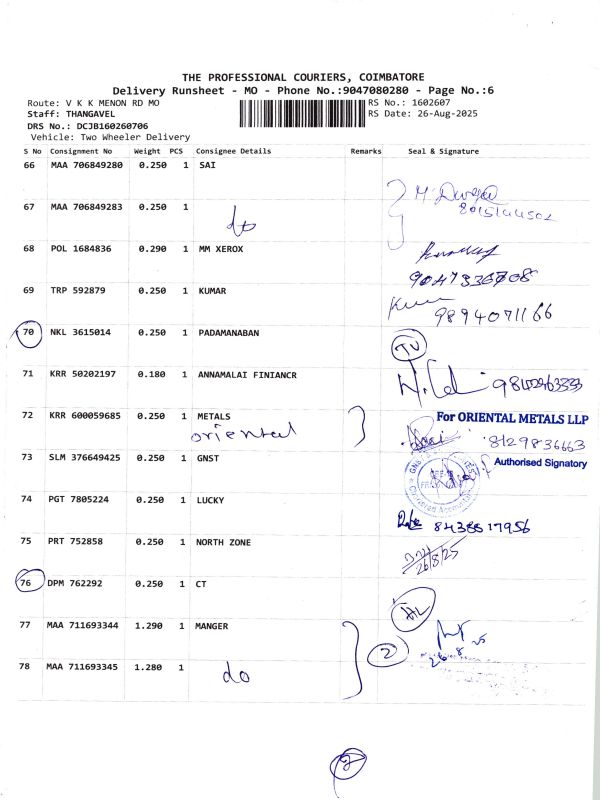 THE PROFESSIONAL COURIERS, COIMBATORE
Delivery Runsheet - MO - Phone No.:9047080280 - Page No.:6
Route: V K K MENON RD MO
RS No.: 1602607
Staff: THANGAVEL
RS Date: 26-Aug-2025
DRS No.: DCJB160260706
Vehicle: Two Wheeler Delivery
S No Consignment No Weight PCS Consignee Details Remarks Seal & Signature
66 MAA 706849280 0.250 1 SAI
67 MAA 706849283 0.250 1 do
68 POL 1684836 0.290 1 MM XEROX
69 TRP 592879 0.250 1 KUMAR
9894071166
70 NKL 3615014 0.250 1 PADAMANABAN
71 KRR 50202197 0.180 1 ANNAMALAI FINIANCR
72 KRR 600059685 0.250 1 METALS
For ORIENTAL METALS LLP
oriental
8129836663
73 SLM 376649425 0.250 1 GNST
Authorised Signatory
74 PGT 7805224 0.250 1 LUCKY
75 PRT 752858 0.250 1 NORTH ZONE
26/8/25
76 DPM 762292 0.250 1 CT
77 MAA 711693344 1.290 1 MANGER
2
78 MAA 711693345 1.280 1 do